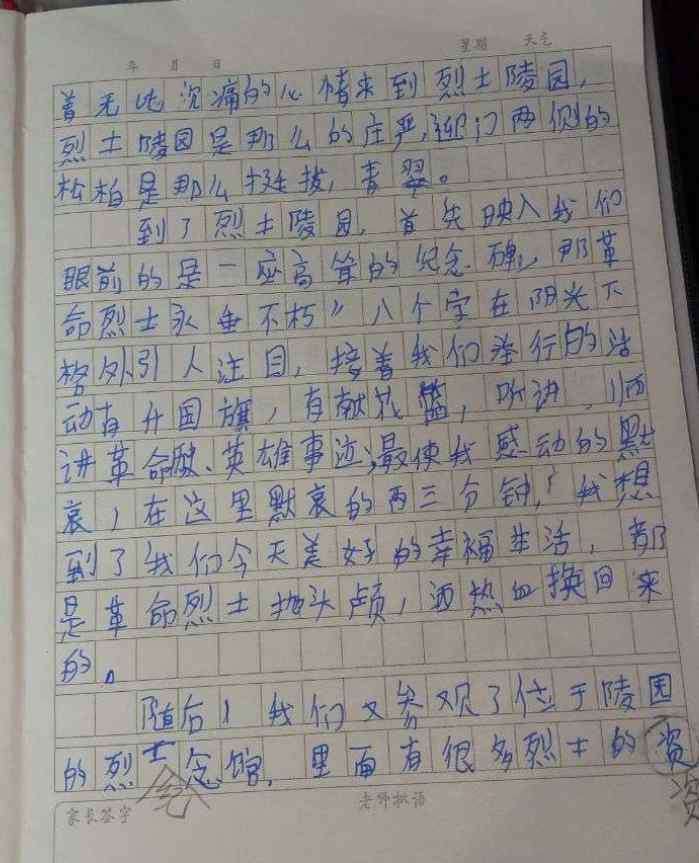 年 月 日 星期 天气
着无比沉痛的心情来到烈士陵园,
烈士陵园是那么的庄严,迎门两侧的
松柏是那么挺拔,青翠。
到了烈士陵园,首先映入我们
眼前的是一座高耸的纪念碑,那革
命烈士永垂不朽”八个字在阳光下
格外引人注目,接着我们举行的活
动有升国旗,有献花篮,听讲,
讲革命 、英雄事迹;最使我感动的默
哀,在这里默哀的两三分钟,我想
到了我们今天美好的幸福生活,都
是革命烈士抛头颅,洒热血换回来
的。
随后,我们又参观了位于陵园
的烈士纪念馆,里面有很多烈士的资
资
家长签字 老师批语